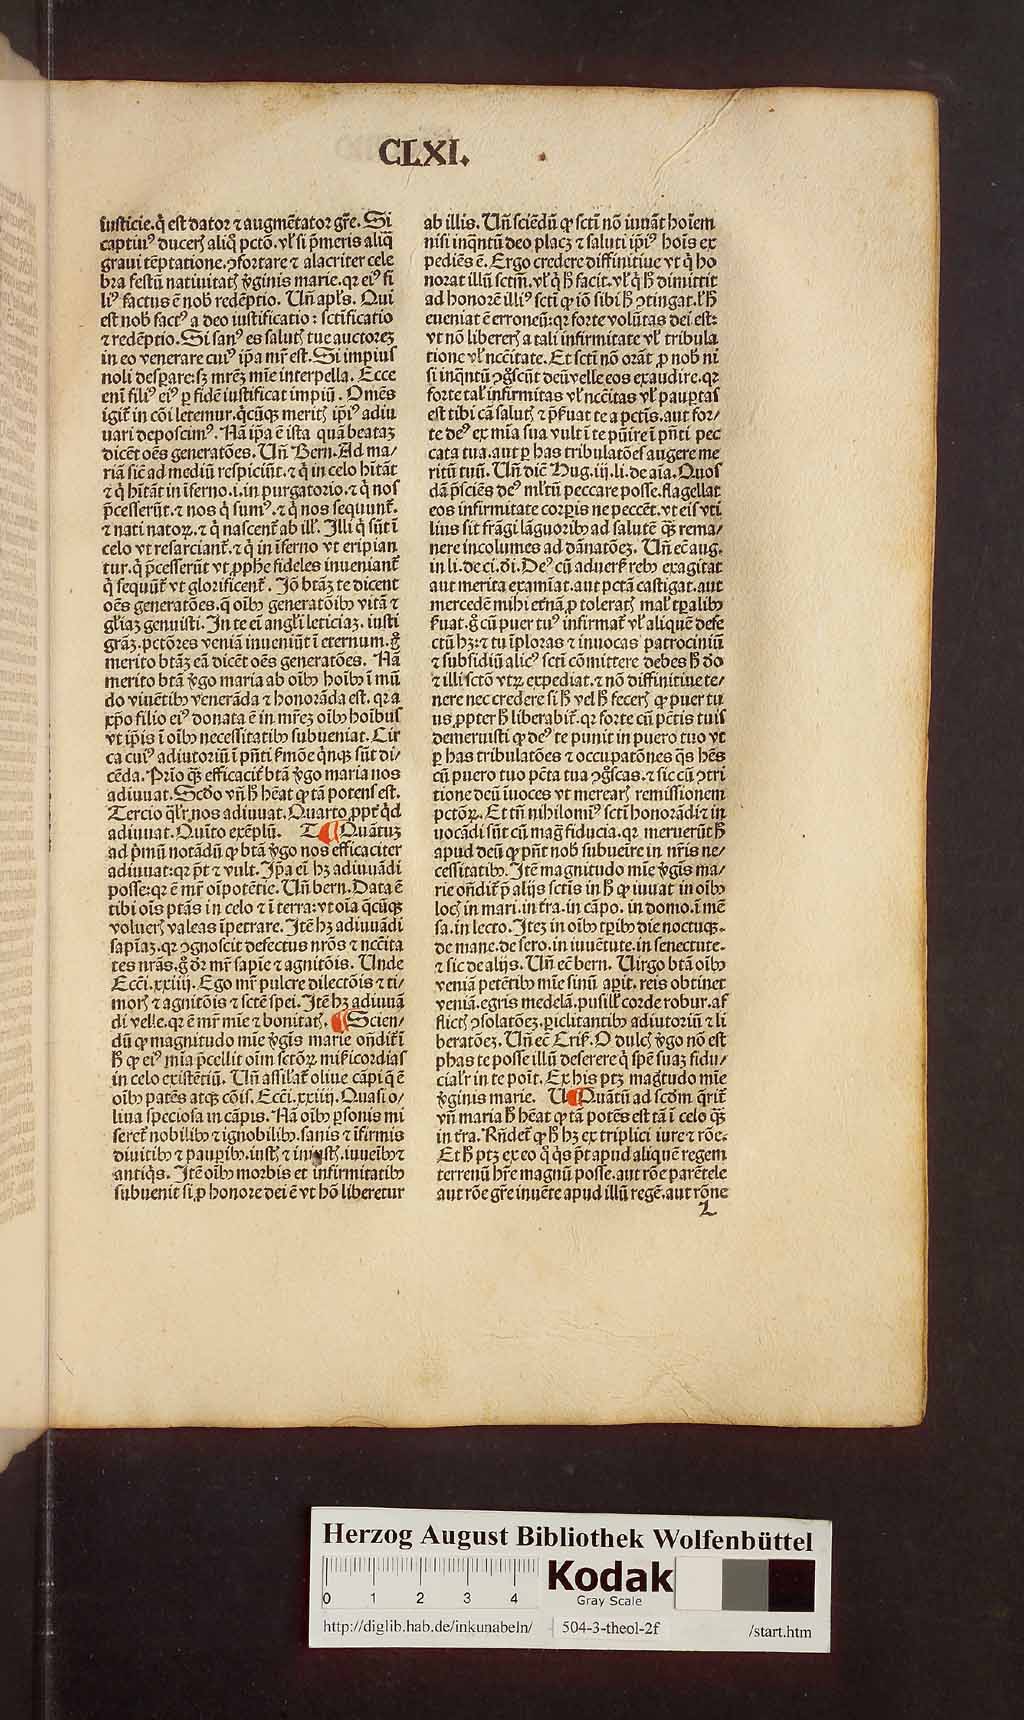 CLXI.
iusticie. q̇ est dator ⁊ augmētator gr̄e. Si
captiuꝰ ducerꝭ aliq̄ pctō. vl̓ si p̄meris aliq̄
graui tēptatione. ꝯfortare ⁊ alacriter cele
bra festū natiuitatꝭ v̓ginis marie. qr eiꝰ fi
liꝰ factus ē nob̓ redēptio. Un̄ apl̓s. Qui
est nob̓ factꝰ a deo iustificatio: sctīficatio
⁊ redēptio. Si sanꝰ es salutꝭ tue auctoreꝫ
in eo venerare cuiꝰ ip̄a mr̄ est. Si impius
noli desꝑare: sꝫ mr̄eꝫ mīe interpella. Ecce
eni filiꝰ eiꝰ ꝑ fidē iustificat impiū. Omēs
igit̄ in cōi letemur. q̇cūqꝫ meritꝭ ip̄iꝰ adiu
uari deposcimꝰ. Nā ip̄a ē ista quā beataꝫ
dicēt oēs generatōes. Un̄ Bern. Ad ma/
riā sic̄ ad mediū respiciūt. ⁊ q̇ in celo hītāt
⁊ q̇ hītāt in īferno. i. in purgatorio. ⁊ q̇ nos
p̄cesserūt. ⁊ nos q̇ sumꝰ. ⁊ q̇ nos sequunt̄.
⁊ nati natoꝝ. ⁊ q̇ nascent̄ ab ill̓. Illi q̇ sūt ī
celo vt resarciant̄. ⁊ q̇ in īferno vt eripian
tur. q̇ p̄cesserūt vt ꝓphe fideles inueniant̄
q̇ sequūt̄ vt glorificent̄. Iō btāꝫ te dicent
oēs generatōes. q̄ oībꝫ generatōibꝫ vitā ⁊
gl̓iaꝫ genuisti. In te ei angl̓i leticiaꝫ. iusti
grāꝫ. pctōres veniā inueniūt ī eternum. g̊
merito btāꝫ eā dicēt oēs generatōes. Nā
merito btā v̓go maria ab oībꝫ hoībꝫ ī mū
do viuētibꝫ venerāda ⁊ honorāda est. qr a
xp̄o filio eiꝰ donata ē in mr̄eꝫ oībꝫ hoībus
vt ip̄is ī oībꝫ necessitatibꝫ subueniat. Cir
ca cuiꝰ adiutoriū ī pn̄ti ẜmōe q̇nqꝫ sūt di/
cēda. Prīo qꝫ efficacit̄ btā v̓go maria nos
adiuuat. Scdo vn̄ hꝫ hēat ꝙ tā potens est.
Tercio ql̓r nos adiuuat. Quarto ꝓpt̄ qd̓
adiuuat. Quīto exēplū. T Quātuꝫ
ad p̄mū notādū ꝙ btā v̓go nos efficaciter
adiuuat: qr pt̄ ⁊ vult. Ip̄a ei hꝫ adiuuādi
posse: qr ē mr̄ oīpotētie. Un̄ bern. Data ē
tibi oīs ptās in celo ⁊ ī terra: vt oīa q̄cūqꝫ
voluerꝭ valeas īpetrare. Itē hꝫ adiuuādi
sapīaꝫ. qr ꝯgnoscit defectus nr̄os ⁊ nccīta
tes nr̄as. g̊ dr̄ mr̄ sapīe ⁊ agnitōis. Unde
Ecci. xxiiij. Ego mr̄ pulcre dilectōis ⁊ ti/
morꝭ ⁊ agnitōis ⁊ sctē spei. Itē hꝫ adiuuā
di velle. qr ē mr̄ mīe ⁊ bonitatꝭ. Scien/
dū ꝙ magnitudo mīe v̓gis marie on̄dit̄ ī
hꝫ ꝙ eiꝰ mīa p̄cellit oīm sctōꝝ mīcordias
in celo existētiū. Un̄ assil̓at̄ oliue cāpi q̄ ē
oībꝫ patēs atqꝫ cōis. Ecci. xxiiij. Quasi o/
liua speciosa in cāpis. Nā oībꝫ ꝑsonis mi
seret̄ nobilibꝫ ⁊ ignobilibꝫ. sanis ⁊ īfirmis
diuitibꝫ ⁊ pauꝑibꝫ. iustꝭ ⁊ iniustꝭ. iuueībꝫ ⁊
antiq̇s. Itē oībꝫ morbis et infirmitatibꝫ
subuenit si ꝓ honore dei ē vt hō liberetur
ab illis. Un̄ sciēdū ꝙ sctī nō iuuāt hoīem
nisi inq̄ntū deo placꝫ ⁊ saluti ip̄iꝰ hoīs ex
pediēs ē. Ergo credere diffinitiue vt q̇ ho
norat illū sctm̄. vl̓ q̇ hꝫ facit. vl̓ q̇ hꝫ dimittit
ad honorē illiꝰ sctī ꝙ iō sibi hꝫ ꝯtingat. l̓ hꝫ
eueniat ē erroneū: qr forte volūtas dei est:
vt nō libererꝭ a tali infirmitate vl̓ tribula
tione vl̓ nccītate. Et sctī nō orāt ꝓ nob̓ ni
si inq̄ntū ꝯgscūt deū velle eos exaudire. qr
forte tal̓ infirmitas vl̓ nccītas vl̓ pauꝑtas
est tibi cā salutꝭ ⁊ p̄ẜuat te a pctīs. aut for/
te deꝰ ex mīa sua vult ī te pūire ī pn̄ti pec
cata tua. aut ꝑ has tribulatōes augere me
ritū tuū. Un̄ dic̄ Hug. iij. li. de aīa. Quos
dā p̄sciēs deꝰ ml̓tū peccare posse. flagellat
eos infirmitate corꝑis ne peccēt. vt eis vti
lius sit frāgi lāguoribꝫ ad salutē qꝫ rema/
nere incolumes ad dānatōeꝫ. Un̄ ec̄ aug.
in li. de ci. di. Deꝰ cū aduerẜ rebꝫ exagitat
aut merita examīat. aut pctā castigat. aut
mercedē mihi etn̄ā ꝓ toleratꝭ mal̓ tꝑalibꝫ
ẜuat. g̊ cū puer tuꝰ infirmat̄ vl̓ aliquē defe
ctū hꝫ: ⁊ tu īploras ⁊ inuocas patrociniū
⁊ subsidiū alicꝰ sctī cōmittere debes hꝫ d̓o
⁊ illi sctō vtꝝ expediat. ⁊ nō diffinitiue te/
nere nec credere si hꝫ vel hꝫ fecerꝭ ꝙ puer tu
us ꝓpter hꝫ liberabit̄. qr forte cū pctīs tuis
demeruisti ꝙ deꝰ te punit in puero tuo vt
ꝑ has tribulatōes ⁊ occupatōnes q̄s hēs
cū puero tuo pctā tua ꝯgscas. ⁊ sic cū ꝯtri
tione deū īuoces vt merearꝭ remissionem
pctōꝝ. Et tn̄ nihilomīꝰ sctī honorādi ⁊ in
uocādi sūt cū maḡ fiducia. qr meruerūt hꝫ
apud deū ꝙ pn̄t nob̓ subueīre in nr̄is ne/
cessitatibꝫ. Itē magnitudo mīe v̓gis ma/
rie on̄dit̄ p̄ alijs sctīs in hꝫ ꝙ iuuat in oībꝫ
locꝭ in mari. in tr̄a. in cāpo. in domo. ī mē
sa. in lecto. Iteꝫ in oībꝫ tꝑibꝫ die noctuqꝫ.
de mane. de sero. in iuuētute. in senectute.
⁊ sic de alijs. Un̄ ec̄ bern. Uirgo btā oībꝫ
veniā petētibꝫ mīe sinū apit. reis obtinet
veniā. egris medelā. pusill̓ corde robur. af
flictꝭ ꝯsolatōeꝫ. ꝑiclitantibꝫ adiutoriū ⁊ li
beratōeꝫ. Un̄ ec̄ Criẜ. O dulcꝭ v̓go nō est
phas te posse illū deserere q̇ spē suaꝫ fidu/
cial̓r in te poīt. Ex his ptꝫ mag̓tudo mīe
v̓ginis marie. U Quātū ad scdm̄ q̄rit̄
vn̄ maria hꝫ hēat ꝙ tā potēs est tā ī celo qꝫ
in tr̄a. Rn̄det̄ ꝙ hꝫ hꝫ ex triplici iure ⁊ rōe.
Et hꝫ ptꝫ ex eo q̇ q̇s pt̄ apud aliquē regem
terrenū hr̄e magnū posse. aut rōe parētele
aut rōe gr̄e inuēte apud illū regē. aut rōne
L
Herzog August Bibliothek Wolfenbüttel
0 1 2 3 4
Kodak
Gray Scale
http://diglib.hab.de/inkunabeln/ 504-3-theol-2f /start.htm